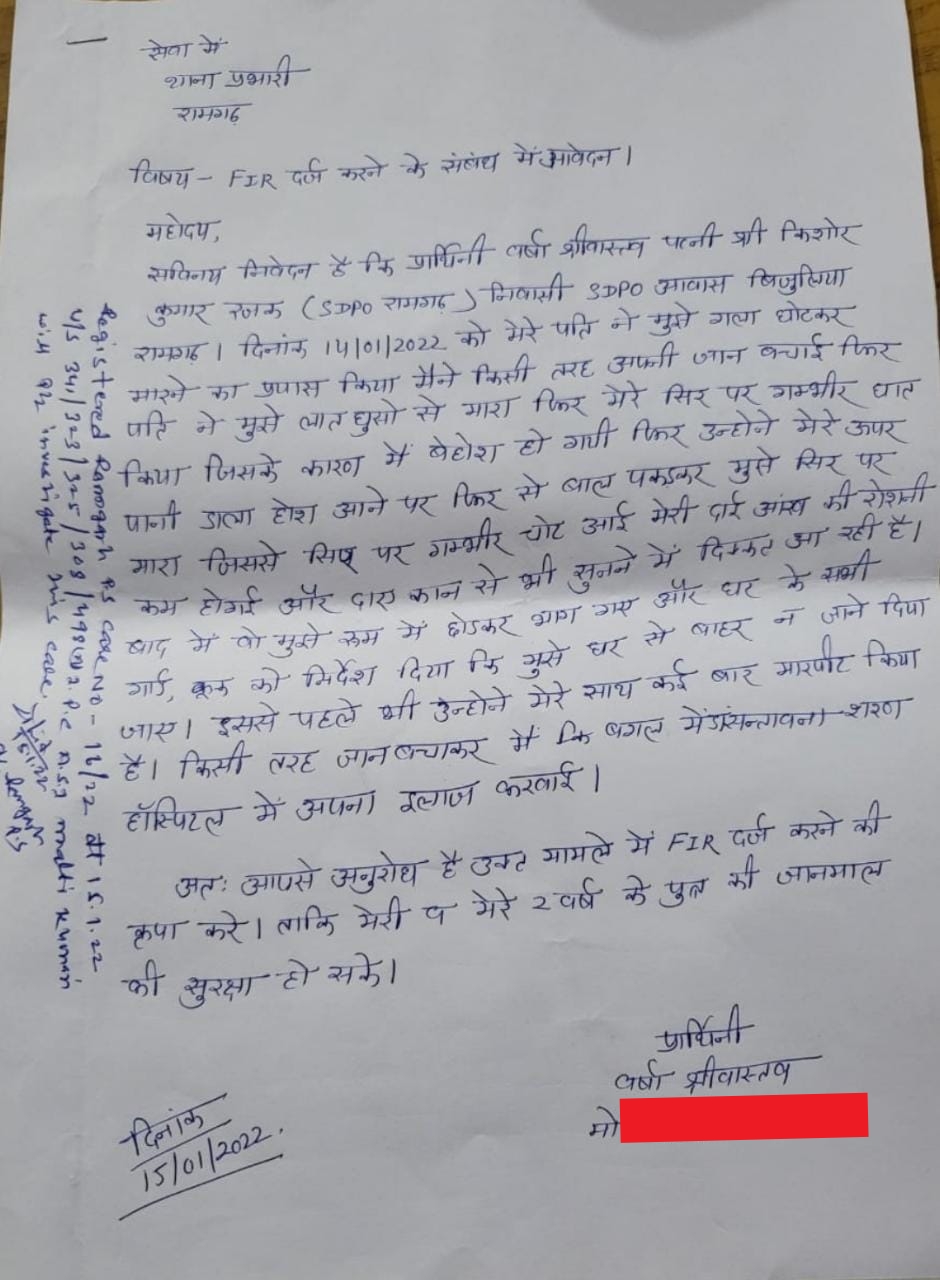 सेवा में
थाना प्रभारी
रामगढ़
विषय - FIR दर्ज करने के संबंध में आवेदन ।
महोदय,
सविनय निवेदन है कि प्रार्थिनी वर्षा श्रीवास्तव पत्नी श्री किशोर
कुमार रजक (SDPO रामगढ़) निवासी SDPO आवास बिजुलिया
रामगढ़ । दिनांक 14/01/2022 को मेरे पति ने मुझे गला घोटकर
मारने का प्रयास किया मैने किसी तरह अपनी जान बचाई फिर
पति ने मुझे लात घुसो से मारा फिर मेरे सिर पर गम्भीर घात
किया जिसके कारण मैं बेहोश हो गयी फिर उन्होने मेरे ऊपर
पानी डाला होश आने पर फिर से बाल पकडकर मुझे सिर पर
मारा जिससे सिर पर गम्भीर चोट आई मेरी दाई आंख की रोशनी
कम होगई और दाए कान से भी सुनने में दिक्कत आ रही है।
बाद में वो मुझे रूम में छोडकर भाग गए और घर के सभी
गार्ड, कूक को निर्देश दिया कि मुझे घर से बाहर न जाने दिया
जाए। इससे पहले भी उन्होने मेरे साथ कई बार मारपीट किया
है। किसी तरह जान बचाकर मैं कि बगल में शरण
हॉस्पिटल में अपना इलाज करवाई ।
अतः आपसे अनुरोध है उक्त मामले में FIR दर्ज करने की
कृपा करे । ताकि मेरी व मेरे 2 वर्ष के पुत्र की जानमाल
की सुरक्षा हो सके।
प्रार्थिनी
वर्षा श्रीवास्तव
मो
दिनांक
15/01/2022.
Registered Ramgarh P.S Case No - 16/22 dt 15.1.22
u/s 341/323/325/308/498(A) I.P.C A.S.I Malti Kumari
will investigate this case.